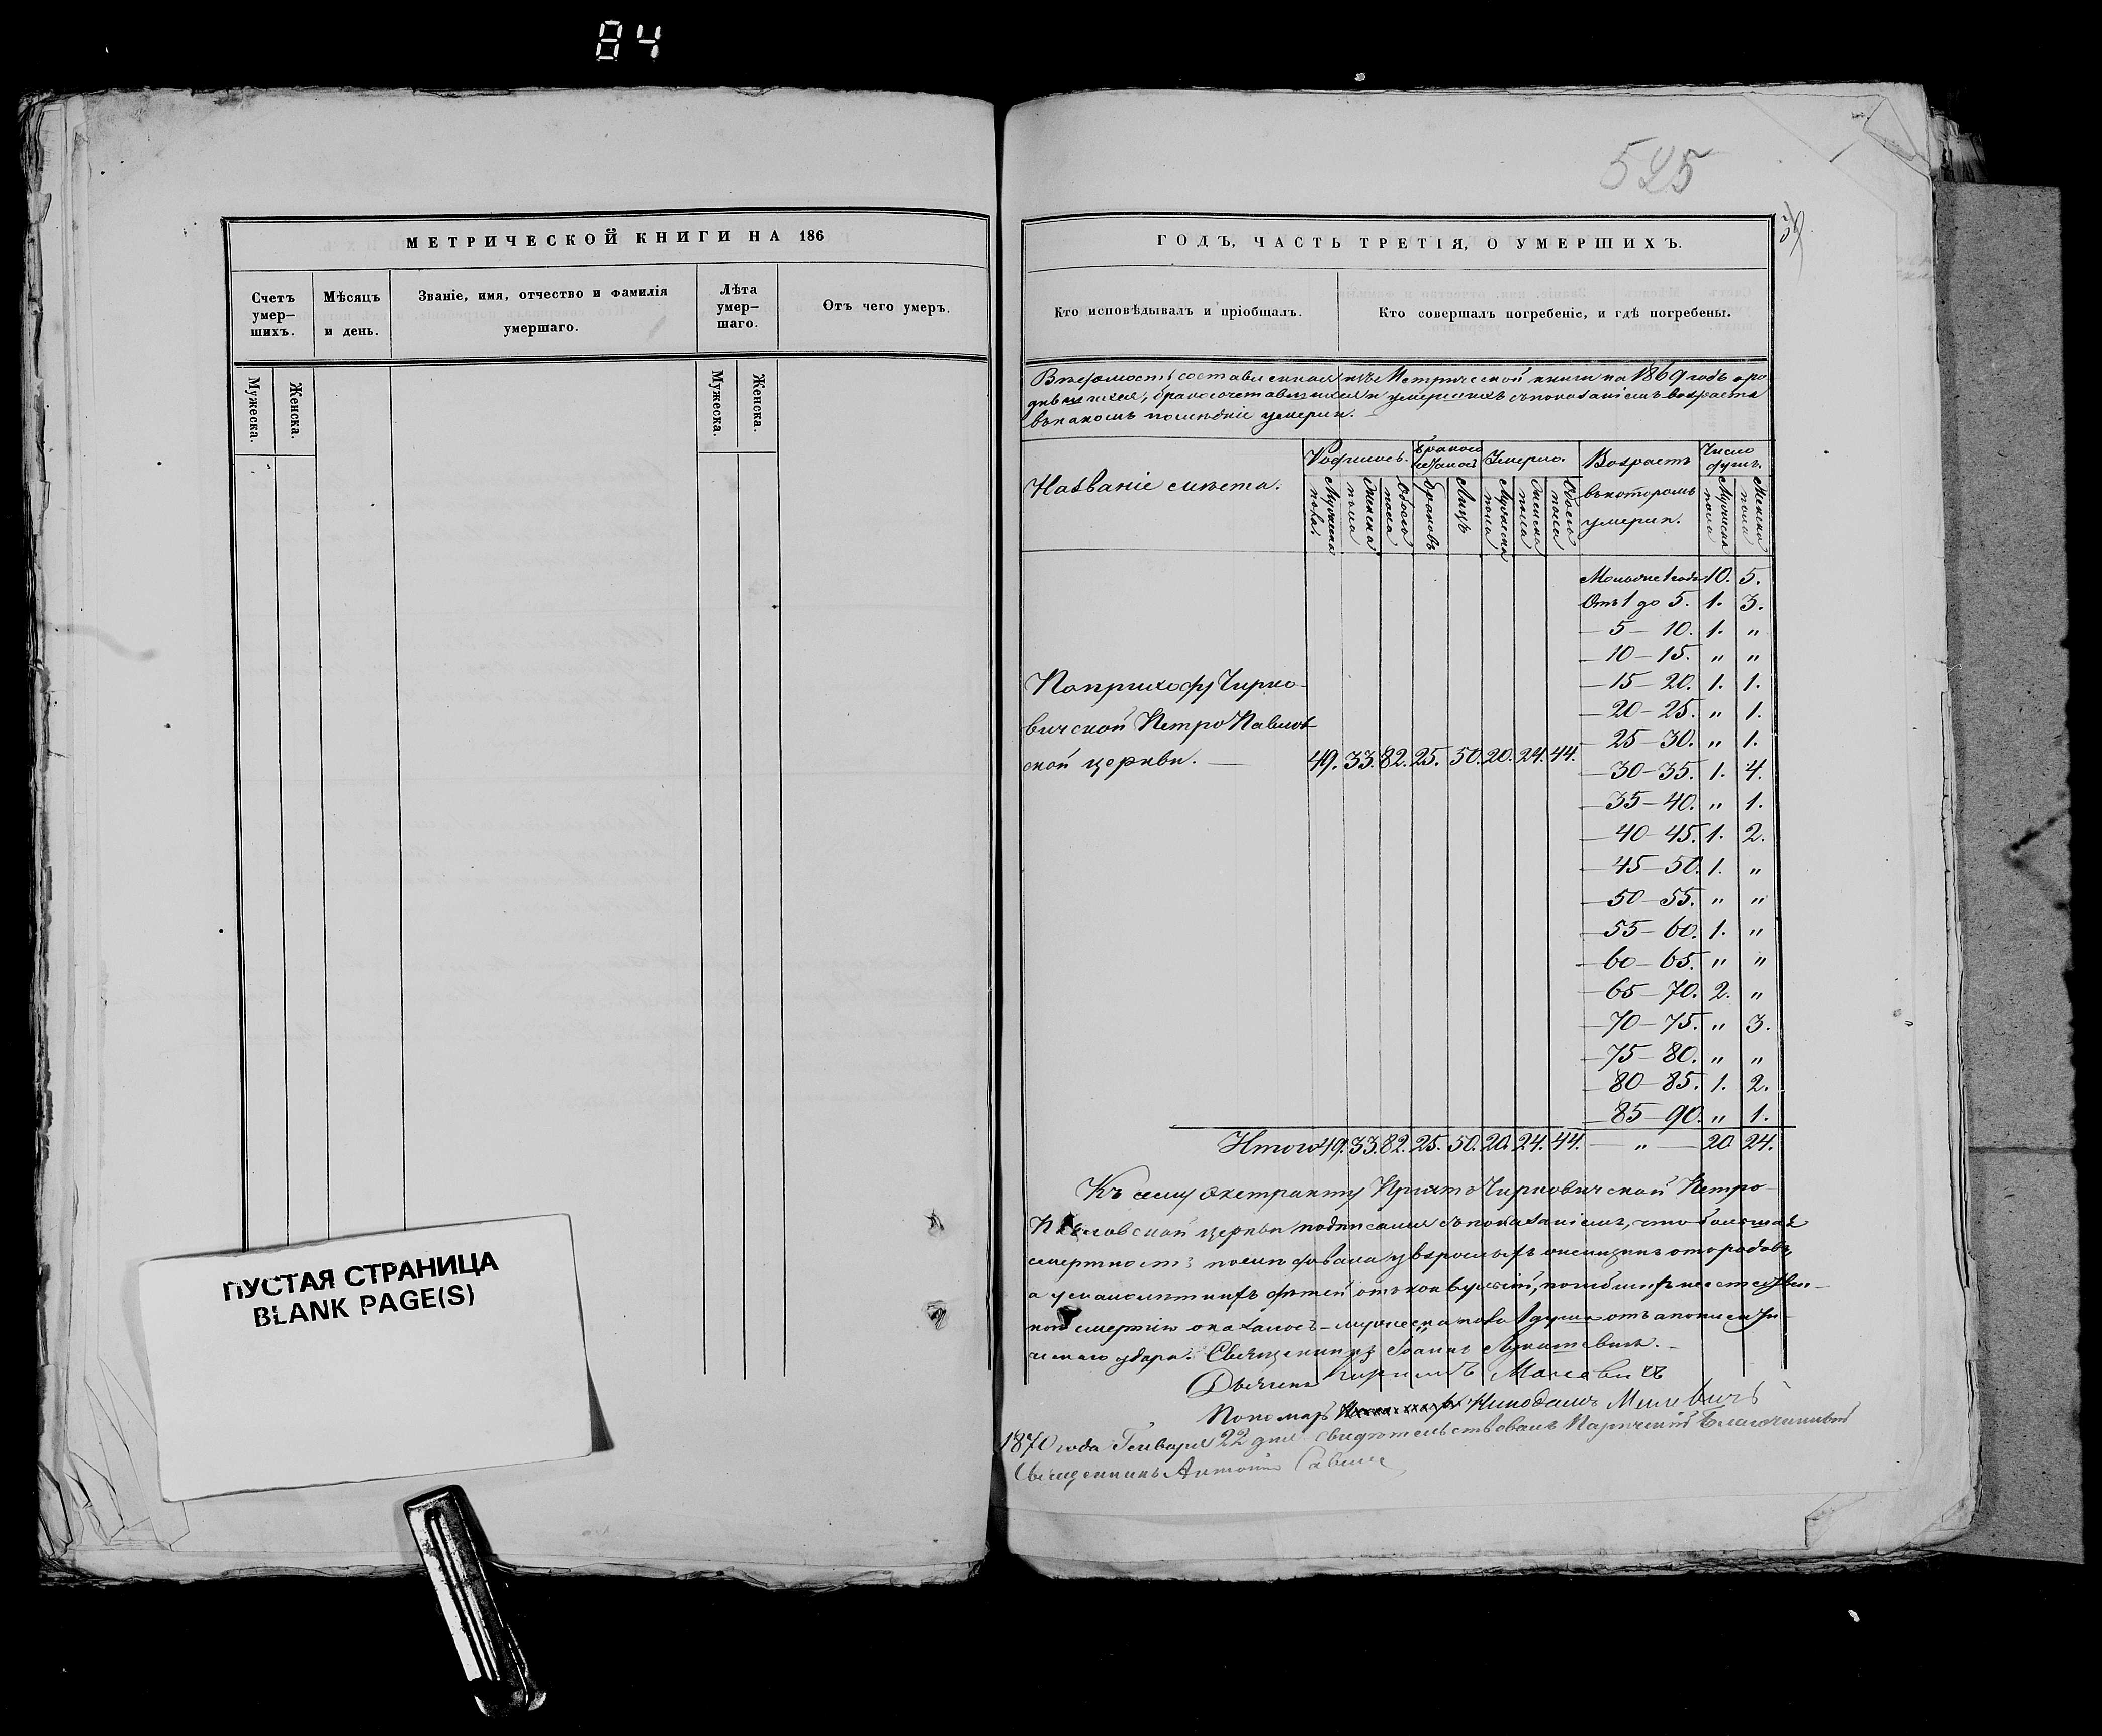 84
525
МЕТРИЧЕСКОЙ КНИГИ НА 186
Счетъ умер-шихъ.
Мѣсяцъ и день.
Званіе, имя, отчество и фамилія умершаго.
Лѣта умер-шаго.
Отъ чего умеръ.
Мужеска.
Женска.
Мужеска.
Женска.
ПУСТАЯ СТРАНИЦА
BLANK PAGE(S)
ГОДЪ, ЧАСТЬ ТРЕТІЯ, О УМЕРШИХЪ.
Кто исповѣдывалъ и пріобщалъ.
Кто совершалъ погребеніе, и гдѣ погребены.
Вѣдомость составленная изъ Метрической книги на 1869 годъ о ро
дившихся, бракосочетавшихся и умершихъ съ показаніемъ возраста
въ какомъ послѣдніе умерли.
Названіе мѣста.
Родилось.
Умерло.
Возрастъ въ которомъ умерли.
Число душъ.
Мужеска пола
Женска пола
Обоего пола
Браковъ
Лицъ
Мужеска пола
Женска пола
Обоего пола
Мужеска пола
Женска пола
Моложе 1 года 10. 5.
Отъ 1 до 5. 1. 3.
— 5 — 10. 1. "
— 10 — 15. " "
— 15 — 20. 1. 1.
— 20 — 25. " 1.
— 25 — 30. " 1.
— 30 — 35. 1. 4.
— 35 — 40. " 1.
— 40 — 45. 1. 2.
— 45 — 50. 1. "
— 50 — 55. " "
— 55 — 60. 1. "
— 60 — 65. " "
— 65 — 70. 2. "
— 70 — 75. " 3.
— 75 — 80. " "
— 80 — 85. 1. 2.
— 85 — 90. " 1.
По приходу Чирко-
вичской Петро Павлов-
ской церкви. — 49. 33. 82. 25. 50. 20. 24. 44.
Итого 49. 33. 82. 25. 50. 20. 24. 44. — " — 20 24.
Къ сему экстракту Причтъ Чирковичской Петро-
Павловской церкви подписался съ показаніемъ, что большая
смертность послѣдовала у взрослыхъ женщинъ отъ родовъ,
а у малолѣтнихъ дѣтей отъ конвульсій, погибшихъ неестествен-
ною смертію оказалось — мужеска пола 1 душа отъ апоплекси-
ческаго удара. Священникъ Іоаннъ
Дьячекъ Кириллъ
Пономарь Никодимъ
1870 года Генваря 22 дня свидѣтельствовалъ Паричскій Благочинный
Священникъ Антоній Савичъ